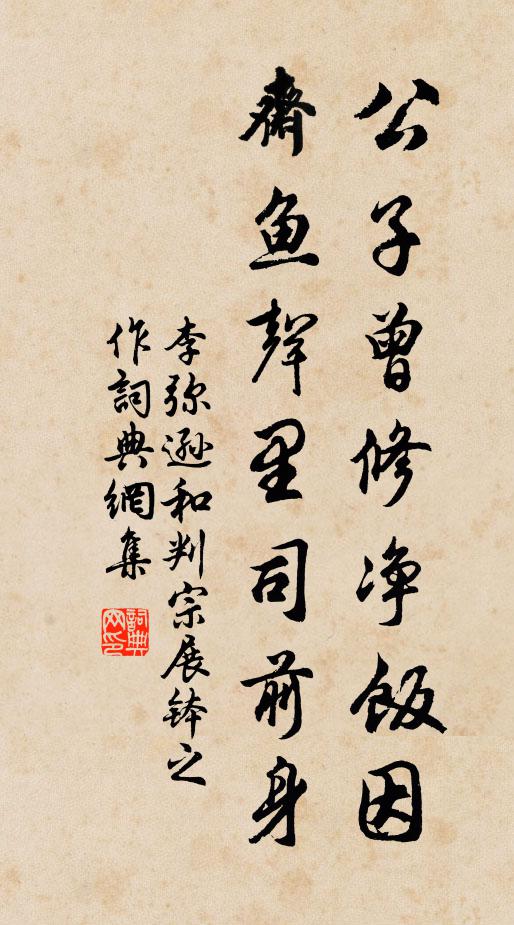 公子曾修净飯因
齋鱼聲里司前身
李弥遜和判宗展鉢之
作詞典網集
詞典网印